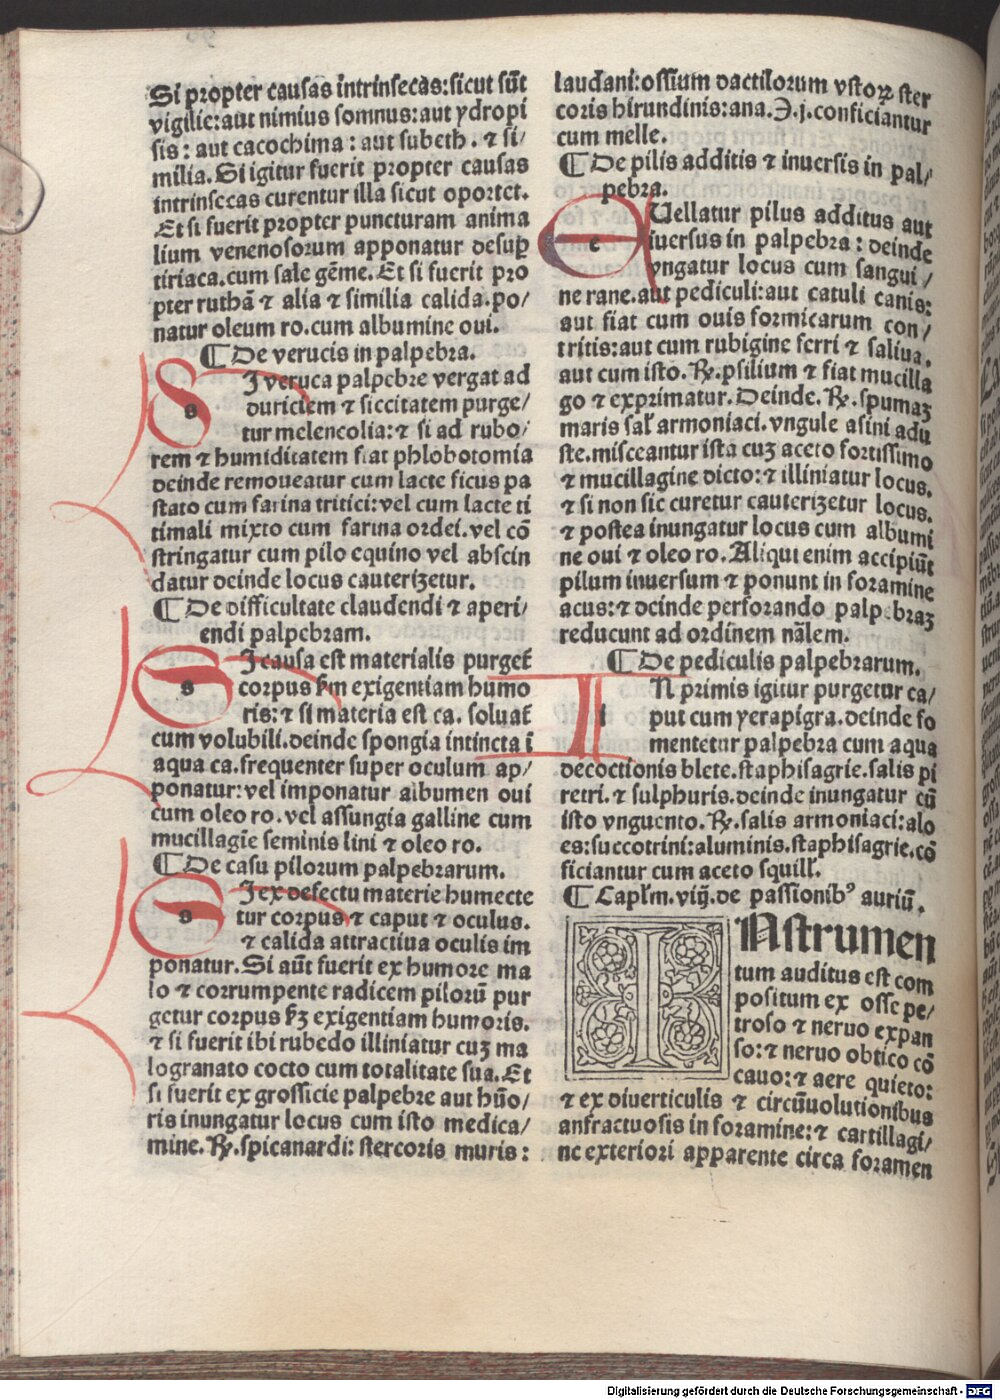 Si propter causas intrinsecas:sicut sūt
vigilie:aut nimius somnus:aut ydropi
sis: aut cacochima: aut subeth. ⁊ si/
milia. Si igitur fuerit propter causas
intrinsecas curentur illa sicut oportet.
Et si fuerit propter puncturam anima
lium venenosorum apponatur desuꝑ
tiriaca.cum sale gēme. Et si fuerit pro
pter ruthā ⁊ alia ⁊ similia calida.po/
natur oleum ro.cum albumine oui.
¶ De verucis in palpebra.
SI veruca palpebre vergat ad
duriciem ⁊ siccitatem purge/
tur melencolia:⁊ si ad rubo/
rem ⁊ humiditatem fiat phlobotomia
deinde remoueatur cum lacte ficus pa
stato cum farina tritici:vel cum lacte ti
timali mixto cum farina ordei.vel cō
stringatur cum pilo equino vel abscin
datur deinde locus cauterizetur.
¶ De difficultate claudendi ⁊ aperi/
endi palpebram.
SI causa est materialis purget̄
corpus ẜm exigentiam humo
ris:⁊ si materia est ca. soluat̄
cum volubili.deinde spongia intincta ī
aqua ca.frequenter super oculum ap/
ponatur:vel imponatur albumen oui
cum oleo ro.vel assungia galline cum
mucillagīe seminis lini ⁊ oleo ro.
¶ De casu pilorum palpebrarum.
SI ex defectu materie humecte
tur corpus ⁊ caput ⁊ oculus.
⁊ calida attractiua oculis im
ponatur. Si aūt fuerit ex humore ma
lo ⁊ corrumpente radicem pilorū pur
getur corpus ẜꝫ exigentiam humoris.
⁊ si fuerit ibi rubedo illiniatur cuꝫ ma
logranato cocto cum totalitate sua. Et
si fuerit ex grossicie palpebre aut hūo/
ris inungatur locus cum isto medica/
mine. ℞. spicanardi: stercoris muris:
laudani:ossium dactilorum vstoꝝ ster
coris hirundinis:ana.Ͽ.j.conficiantur
cum melle.
¶ De pilis additis ⁊ inuersis in pal/
pebra.
EUellatur pilus additus aut
iuersus in palpebra: deinde
vngatur locus cum sangui/
ne rane.aut pediculi:aut catuli canis:
aut fiat cum ouis formicarum con/
tritis:aut cum rubigine ferri ⁊ saliua.
aut cum isto. ℞. psilium ⁊ fiat mucilla
go ⁊ exprimatur. Deinde. ℞. spumaꝫ
maris sal' armoniaci. vngule asini adu
ste.misceantur ista cuꝫ aceto fortissimo
⁊ mucillagine dicto:⁊ illiniatur locus.
⁊ si non sic curetur cauterizetur locus.
⁊ postea inungatur locus cum albumi
ne oui ⁊ oleo ro. Aliqui enim accipiūt
pilum inuersum ⁊ ponunt in foramine
acus:⁊ deinde perforando palpebraꝫ
reducunt ad ordinem nālem.
¶ De pediculis palpebrarum.
IN primis igitur purgetur ca/
put cum yerapigra.deinde fo
mentetur palpebra cum aqua
decoctionis blete.staphisagrie.salis pi
retri.⁊ sulphuris.deinde inungatur cū
isto vnguento. ℞. salis armoniaci:alo
es:succotrini:aluminis.staphisagrie.cō
ficiantur cum aceto squill'.
¶ Capl'm.viij.de passionibꝰ auriū.
INstrumen
tum auditus est com
positum ex osse pe/
troso ⁊ neruo expan
so:⁊ neruo obtico cō
cauo:⁊ aere quieto:
⁊ ex diuerticulis ⁊ circūuolutionibus
anfractuosis in foramine:⁊ cartillagi/
ne exteriori apparente circa foramen
Digitalisierung gefördert durch die Deutsche Forschungsgemeinschaft - DFG